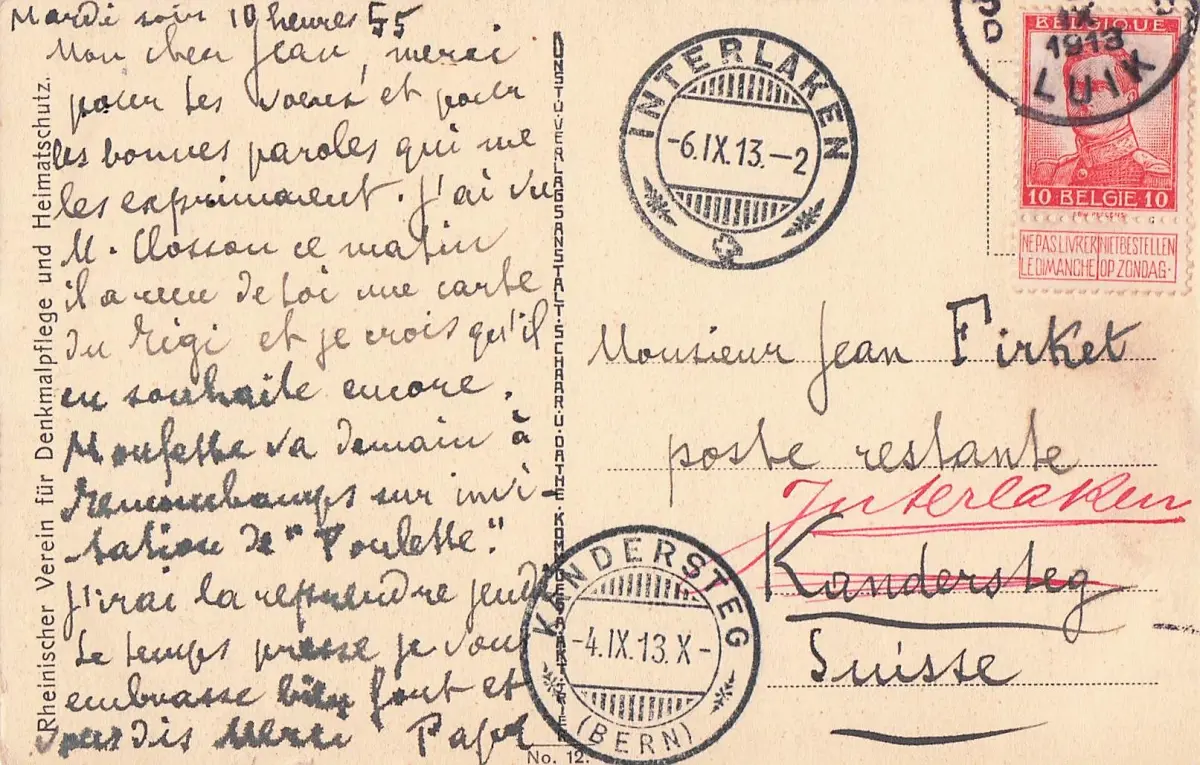 Mardi soir 10 heures 55
Mon cher Jean, merci
pour tes voeux et pour
les bonnes paroles qui me
les exprimaient. J'ai vu
M. Closson ce matin
il a reçu de toi une carte
du Rigi et je crois qu'il
en souhaite encore.
Moufette va demain à
Remouchamps sur invi-
tation de "Poulette".
J'irai la reprendre jeudi
Le temps presse je vous
embrasse bien fort et
vous dis Merci Papa
Rheinischer Verein für Denkmalpflege und Heimatschutz.
KUNSTVERLAGSANSTALT·SCHAAR·U·DATHE·KOM
No. 12.
INTERLAKEN
-6.IX.13.-2
KANDERSTEG
-4.IX.13.X-
(BERN)
IX
1913
LUIK
BELGIQUE
10 BELGIE 10
NE PAS LIVRER LE DIMANCHE
NIET BESTELLEN OP ZONDAG
Monsieur Jean Firket
poste restante
Interlaken
Kandersteg
Suisse